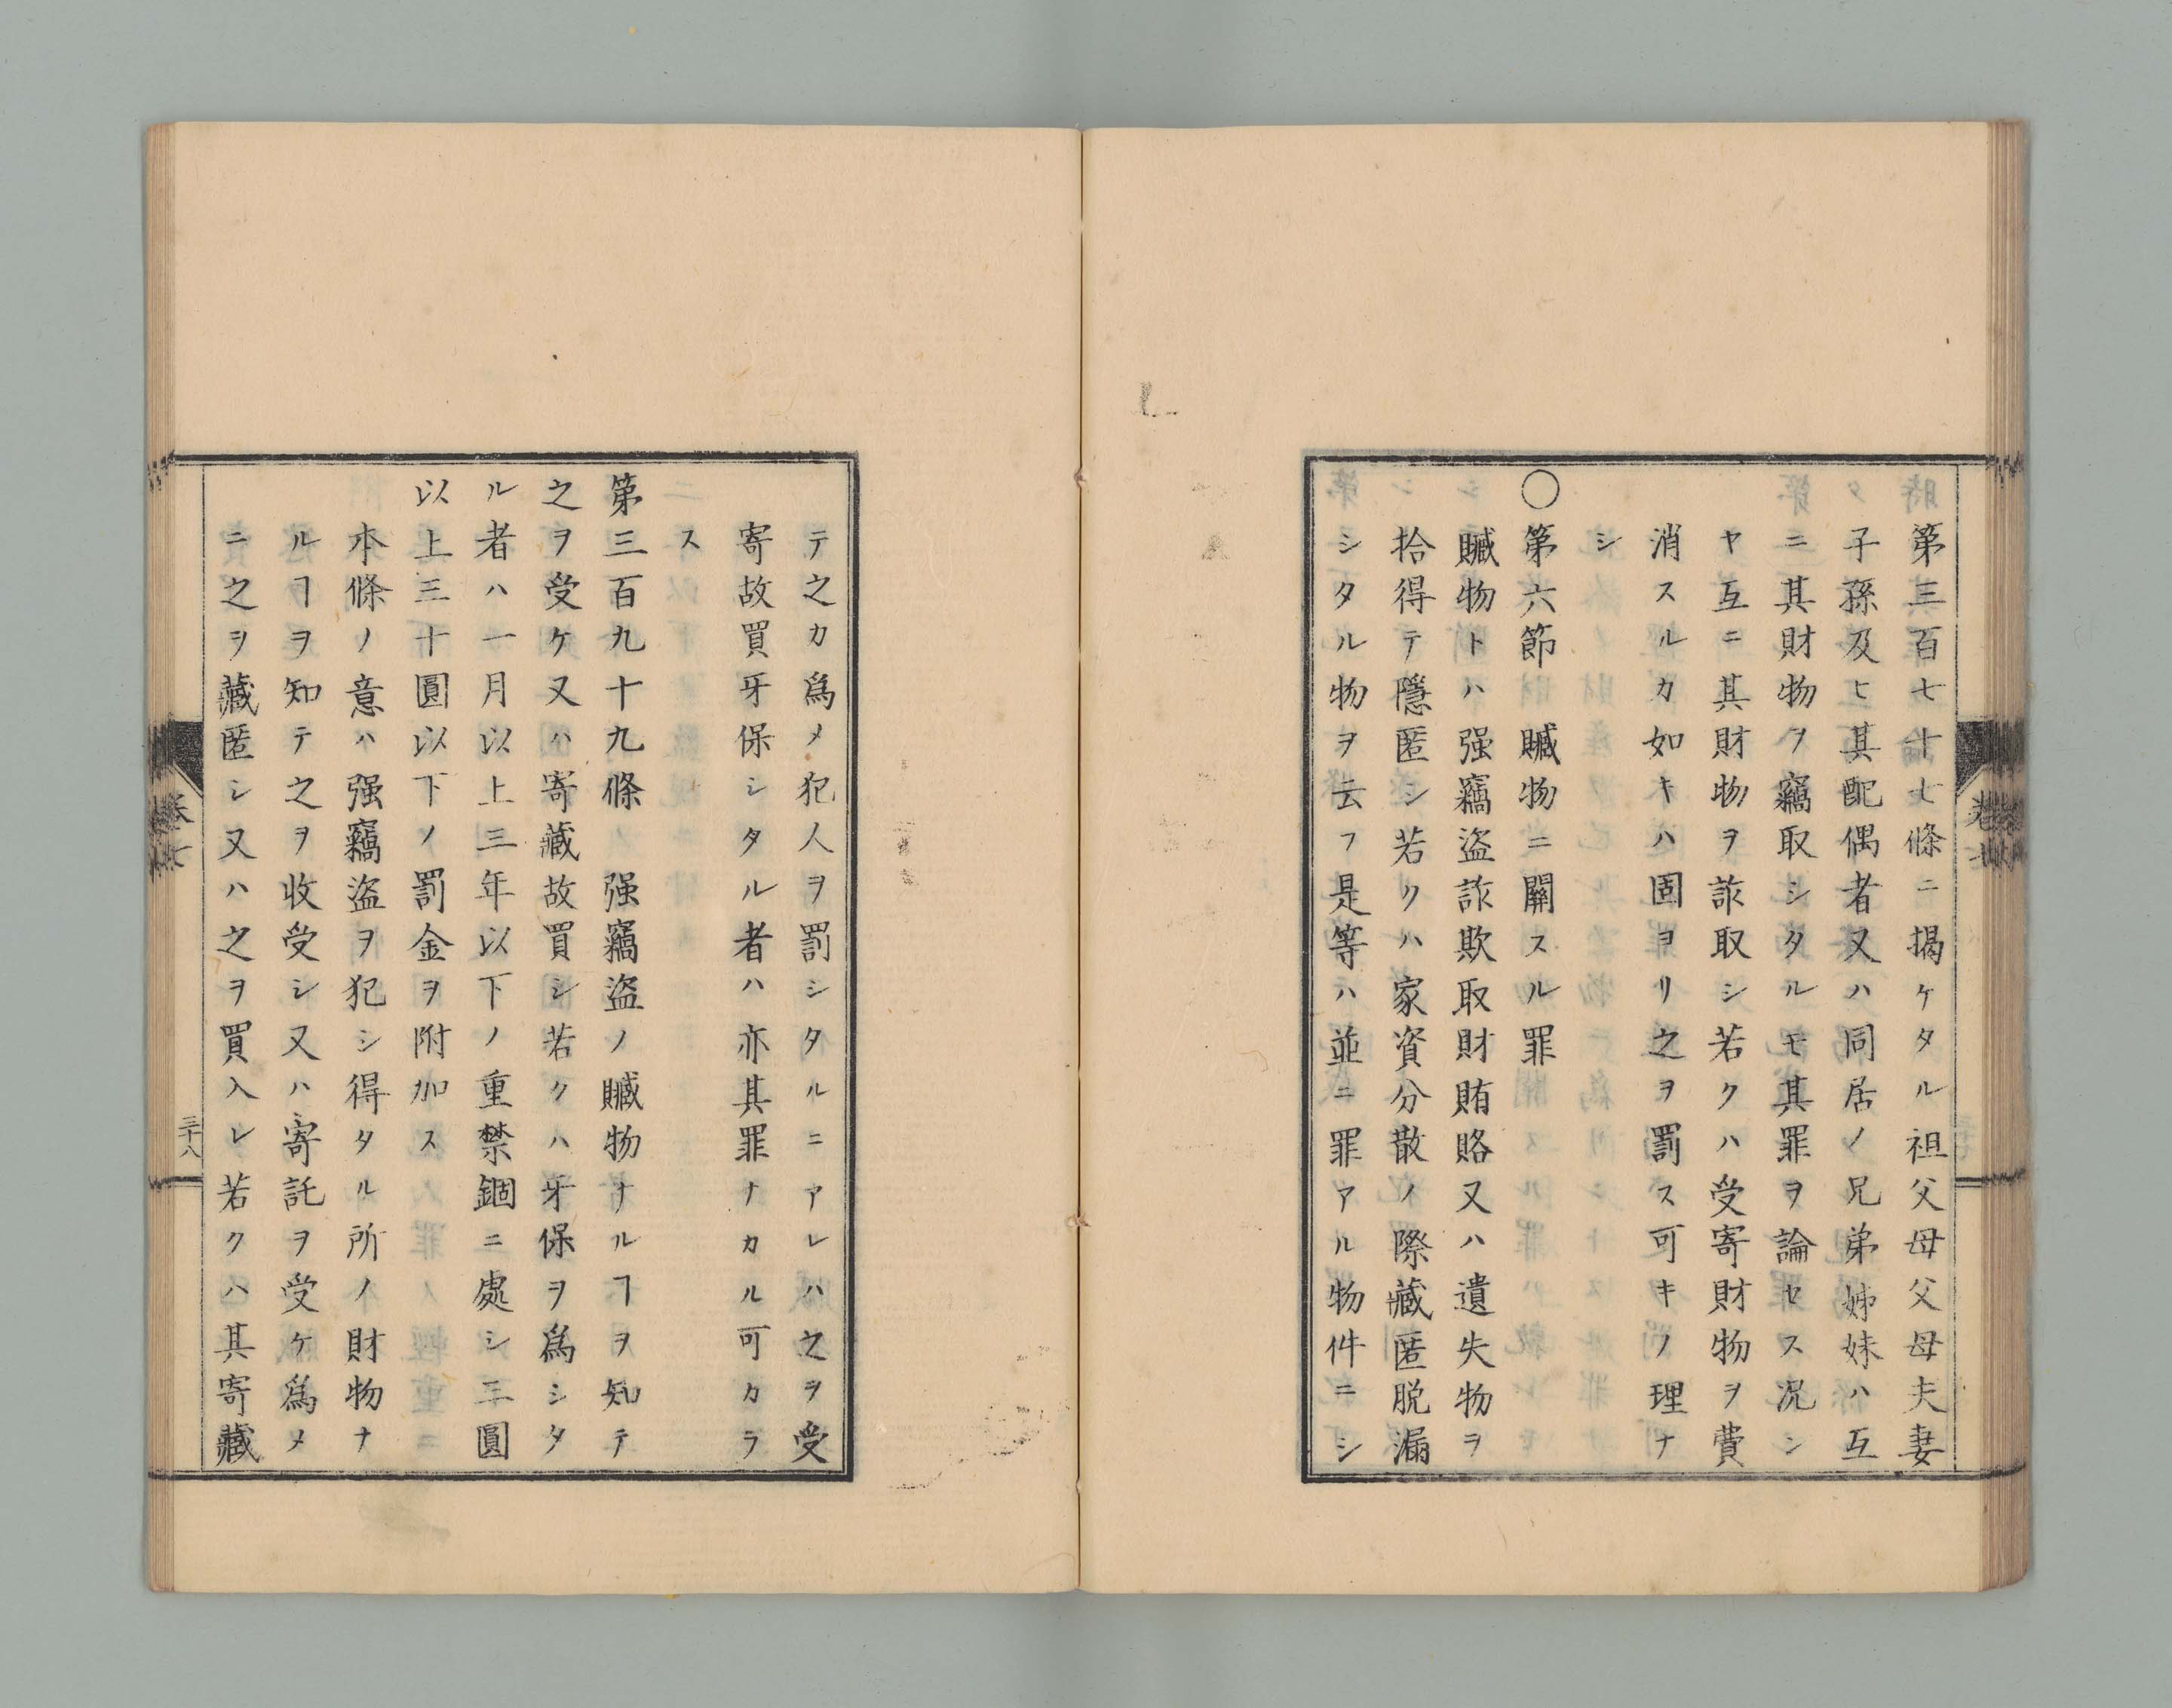 第三百七十七條ニ揭ケタル祖父母父母夫妻
子孫及ヒ其配偶者又ハ同居ノ兄弟姊妹ハ互
ニ其財物ヲ竊取シタルモ其罪ヲ論セス况ン
ヤ互ニ其財物ヲ詐取シ若クハ受寄財物ヲ費
消スルカ如キハ固ヨリ之ヲ罰ス可キノ理ナ
シ
〇第六節 贓物ニ關スル罪
贓物トハ强竊盜詐欺取財賄賂又ハ遺失物ヲ
拾得テ隱匿シ若クハ家資分散ノ際藏匿脱漏
シタル物ヲ云フ是等ハ並ニ罪アル物件ニシ
卷七
テ之カ爲メ犯人ヲ罰シタルニアレハ之ヲ受
寄故買牙保シタル者ハ亦其罪ナカル可カラ
ス
第三百九十九條 强竊盜ノ贓物ナルヿヲ知テ
之ヲ受ケ又ハ寄藏故買シ若クハ牙保ヲ爲シタ
ル者ハ一月以上三年以下ノ重禁錮ニ處シ三圓
以上三十圓以下ノ罰金ヲ附加ス
本條ノ意ハ强竊盜ヲ犯シ得タル所ノ財物ナ
ルヿヲ知テ之ヲ收受シ又ハ寄託ヲ受ケ爲メ
ニ之ヲ藏匿シ又ハ之ヲ買入レ若クハ其寄藏
卷七
三十八